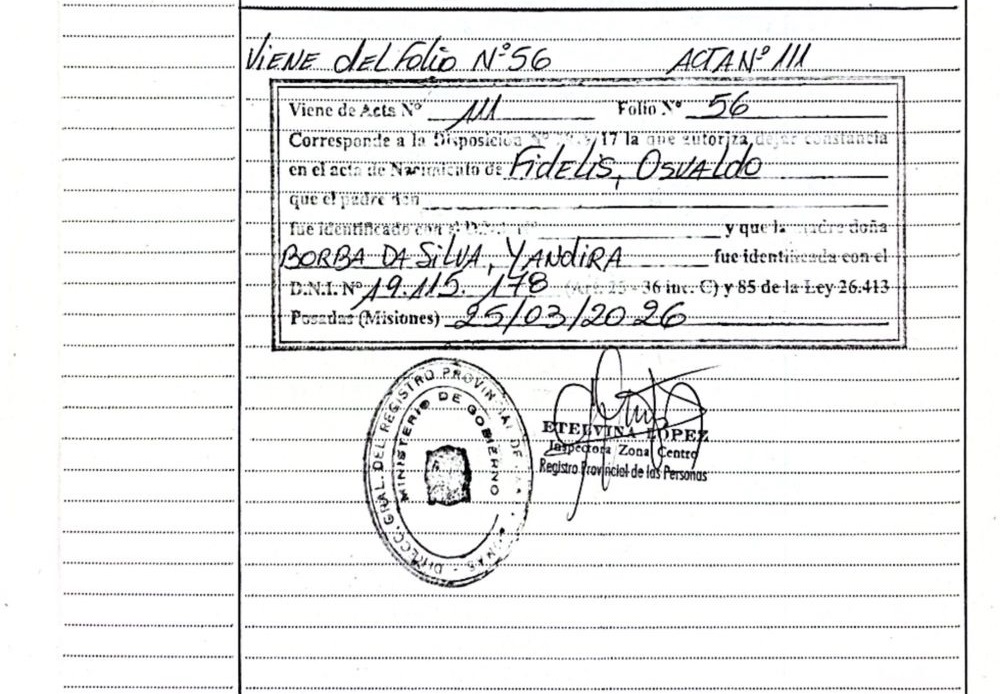 VIENE del Folio Nº 56 ACTA Nº 111
Viene de Acta Nº 111 Folio Nº 56
Corresponde a la Disposición Nº /17 la que autoriza dejar constancia
en el acta de Nacimiento de FidELIS, OSVALdo
que el padre don
fue identificado con el D.N.I. Nº y que la madre doña
BORBA DA SILVA, YANdiRA fue identificada con el
D.N.I. Nº 19.115.178 (Art. 25 - 36 inc. C) y 85 de la Ley 26.413
Posadas (Misiones) 25/03/2026
DIRECC. GRAL. DEL REGISTRO PROVINCIAL DE
MINISTERIO DE GOBIERNO
ETELVINA LOPEZ
Inspectora Zona Centro
Registro Provincial de las Personas